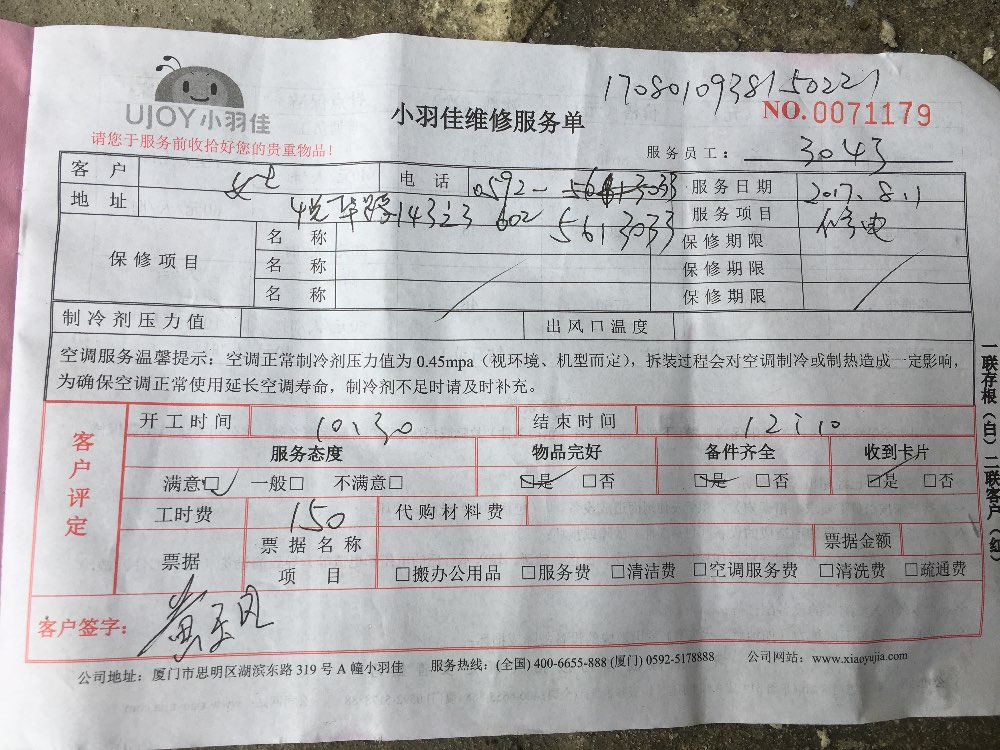 UJOY小羽佳
请您于服务前收拾好您的贵重物品！
小羽佳维修服务单
1708010938150221
NO.0071179
服务员工： 3043
客 户 女士 电 话 0592-5613033 服务日期 2017.8.1
地 址 悦华路143之3 602 5613033 服务项目 修电
保修项目 名 称 保修期限
名 称 保修期限
名 称 保修期限
制冷剂压力值 出风口温度
空调服务温馨提示：空调正常制冷剂压力值为 0.45mpa（视环境、机型而定），拆装过程会对空调制冷或制热造成一定影响，
为确保空调正常使用延长空调寿命，制冷剂不足时请及时补充。
客户评定
开工时间 10:30 结束时间 12:10
服务态度 物品完好 备件齐全 收到卡片
满意□ 一般□ 不满意□ □是 □否 □是 □否 □是 □否
工时费 150 代购材料费
票据 票据名称 票据金额
项 目 □搬办公用品 □服务费 □清洁费 □空调服务费 □清洗费 □疏通费
客户签字：
公司地址：厦门市思明区湖滨东路 319 号 A 幢小羽佳 服务热线：(全国) 400-6655-888 (厦门) 0592-5178888 公司网站：www.xiaoyujia.com
一联存根（白）二联客户（红）